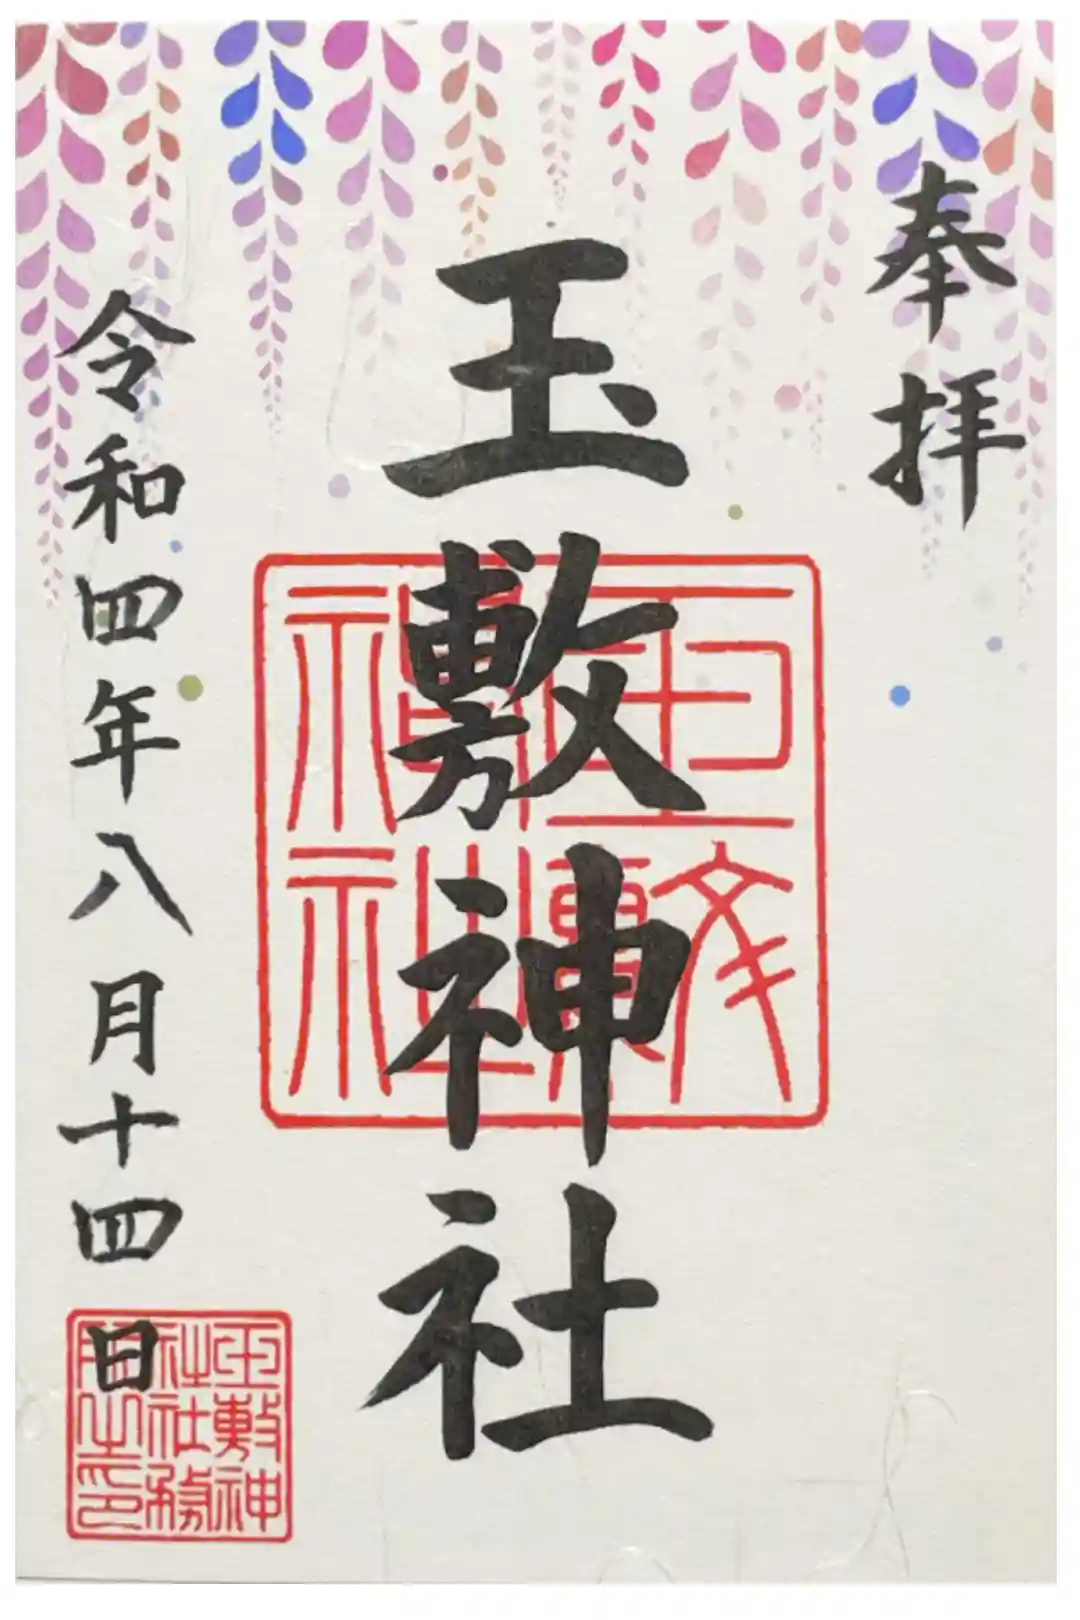 奉拝
玉敷神社
令和四年八月十四日
玉敷
神社
玉敷神
社社務
所之印